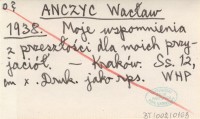 ANCZYC Wacław
1938. Moje wspomnienia
z przeszłości dla moich przy-
jaciół. — Kraków. Ss. 12,
cm x . Druk. jako rps. WHP